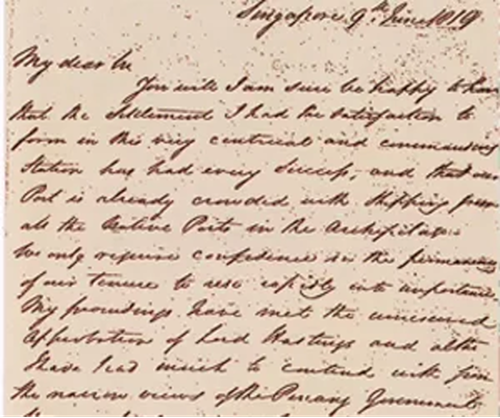 Singapore 9th June 1819
My dear Sir
You will I am sure be happy to hear
that the Settlement I had the satisfaction to
form in this very centrical and commanding
Station has had every success, and that our
Port is already crowded with shipping from
all the Native Ports in the Archipelago
We only require confidence in the permanency
of our tenure to rise rapidly into importance
My proceedings have met the unreserved
Approbation of Lord Hastings and altho
I have had much to contend with from
the narrow views of the Penang Government